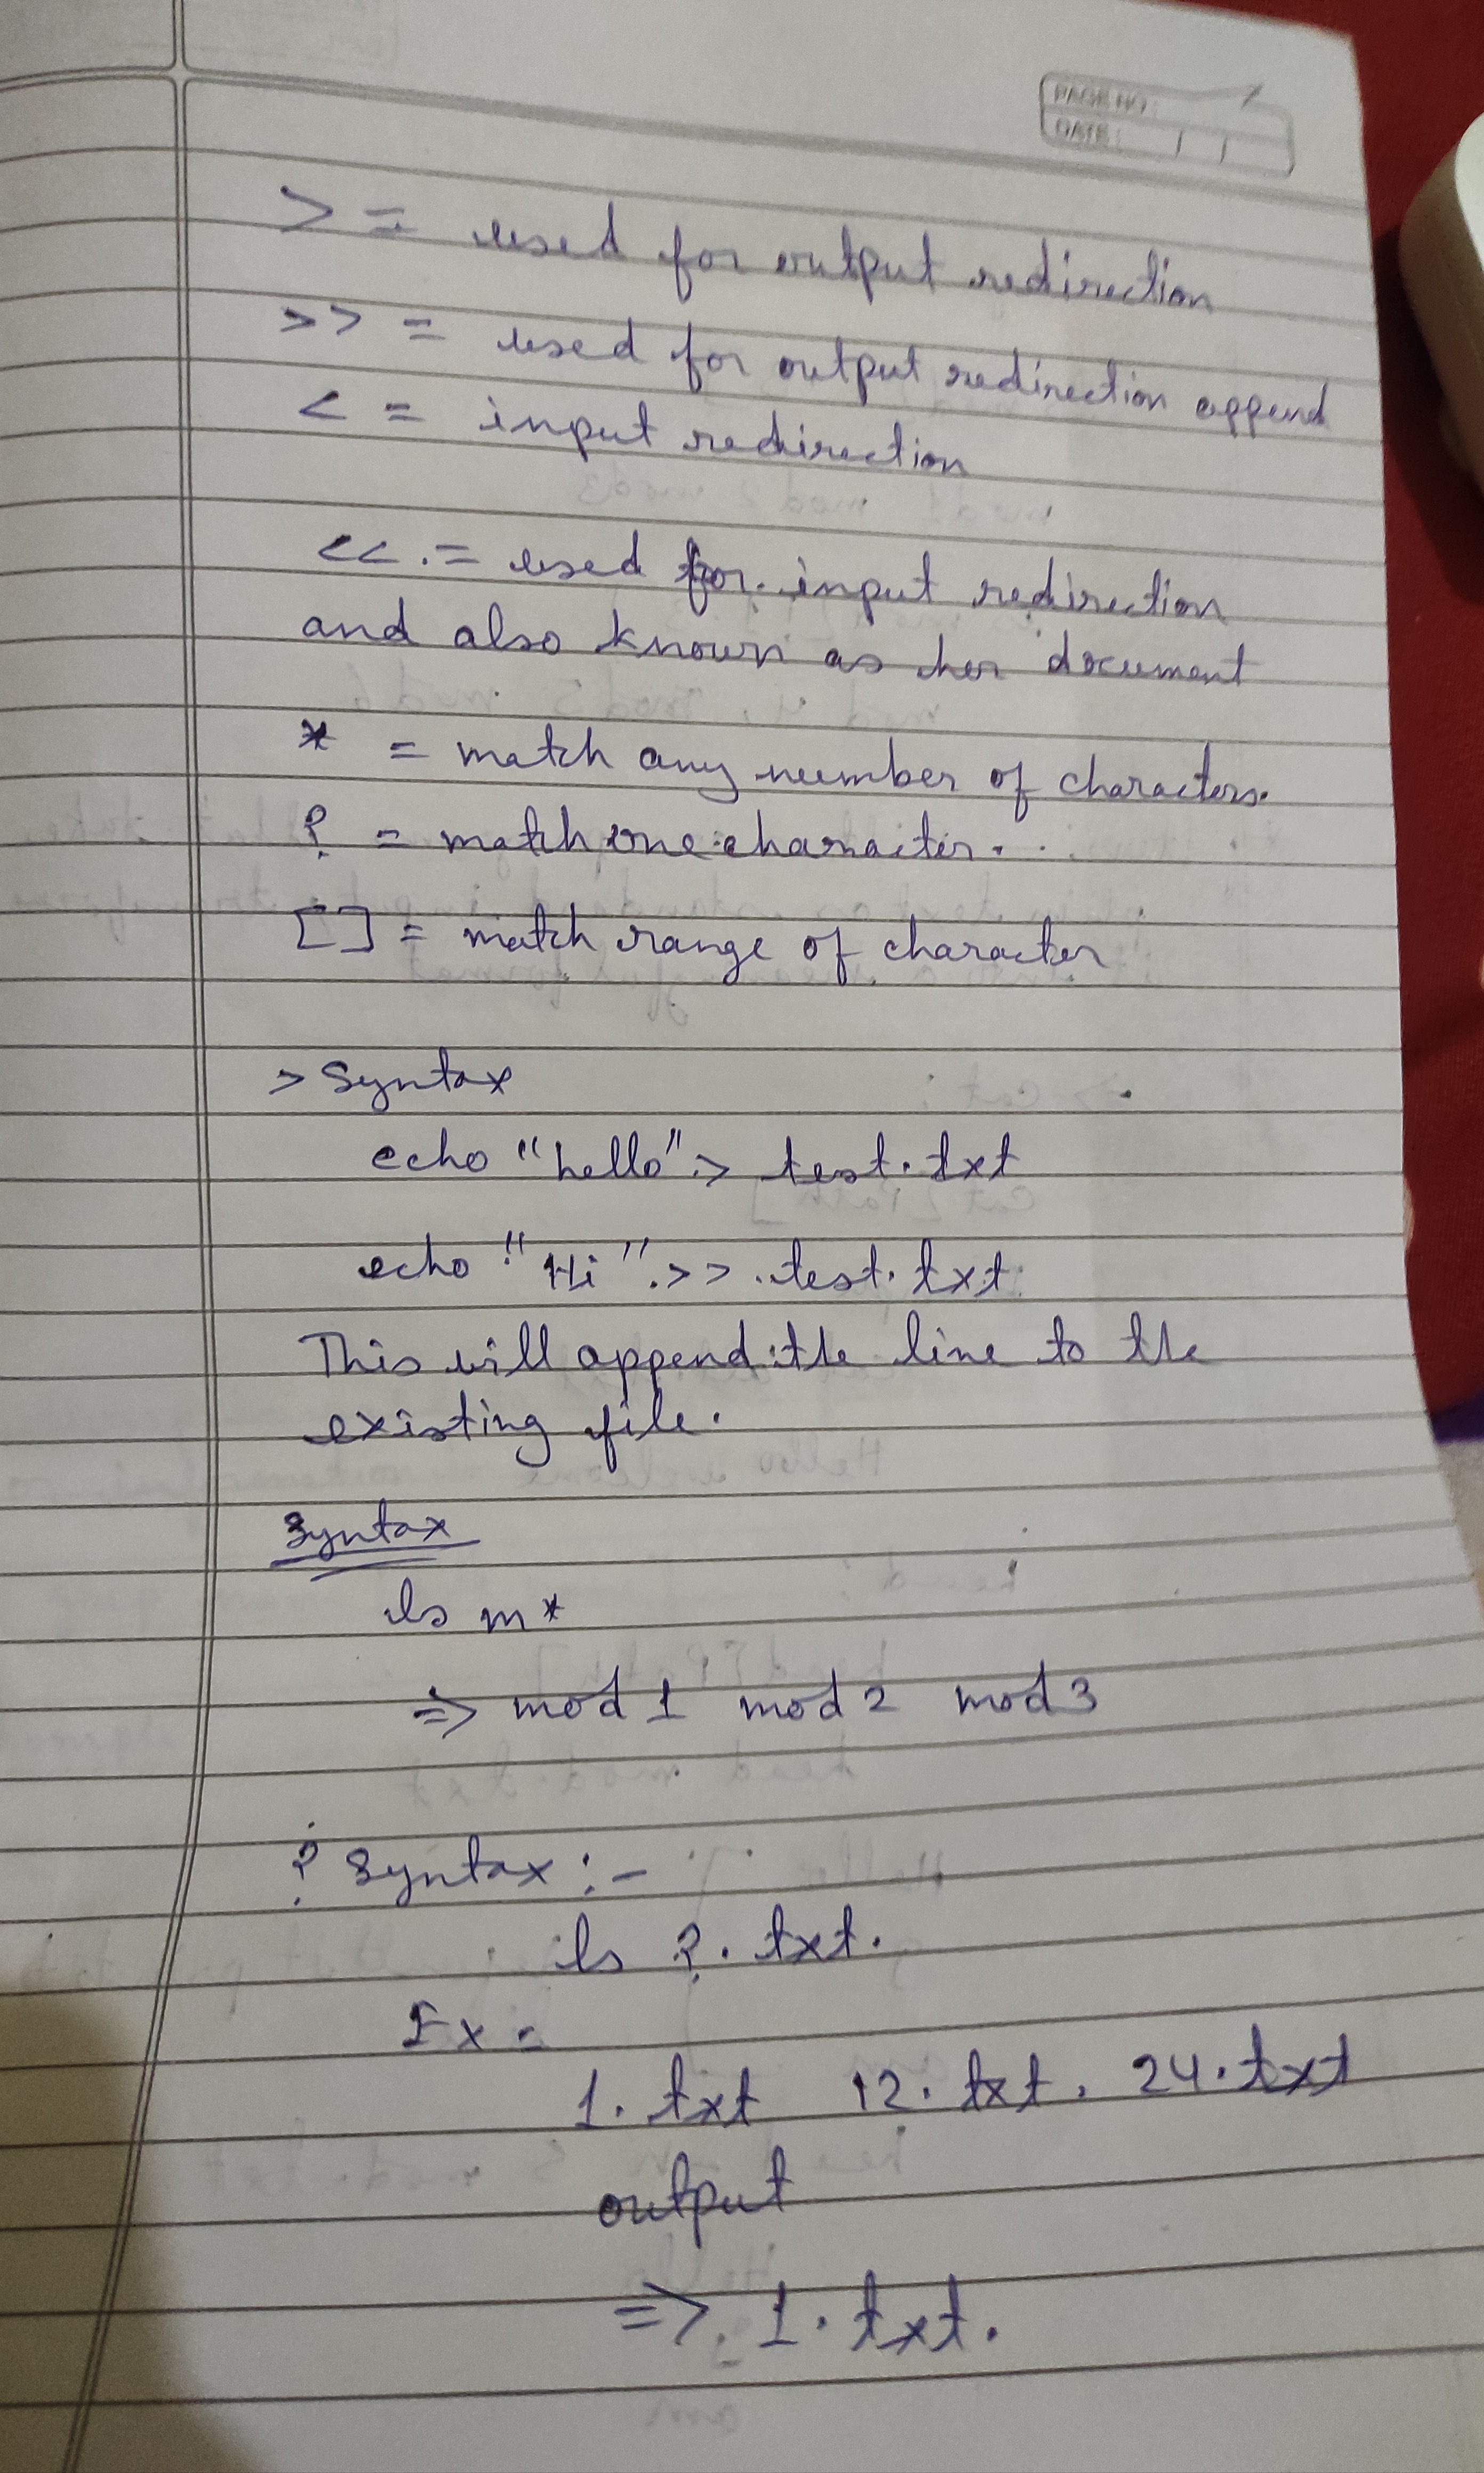 PAGE NO:
DATE: / /
> = used for output redirection
>> = used for output redirection append
< = input redirection
<< = used for input redirection
and also known as her document
* = match any number of characters.
? = match one character.
[ ] = match range of character
> Syntax
echo "hello" > test.txt
echo "Hi" >> test.txt
This will append the line to the
existing file.
Syntax
ls m*
=> mod1 mod2 mod3
? Syntax :-
ls ?.txt.
Ex =
1.txt 12.txt. 24.txt
output
=> 1.txt.